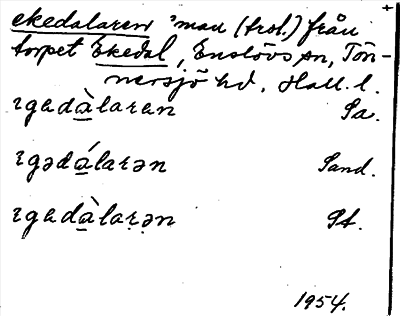 ekedalaren "man (trol.) från
torpet Ekedal, Enslövs sn, Tön-
nersjö hd, Hall. l.
ꞇgadàlaran Sa.
ꞇgədálarən Sand.
ꞇgadàlaṛən St.
1954.